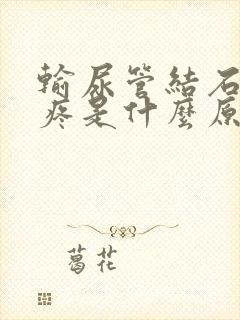 輸尿管結石
疼是什麼原
葛花